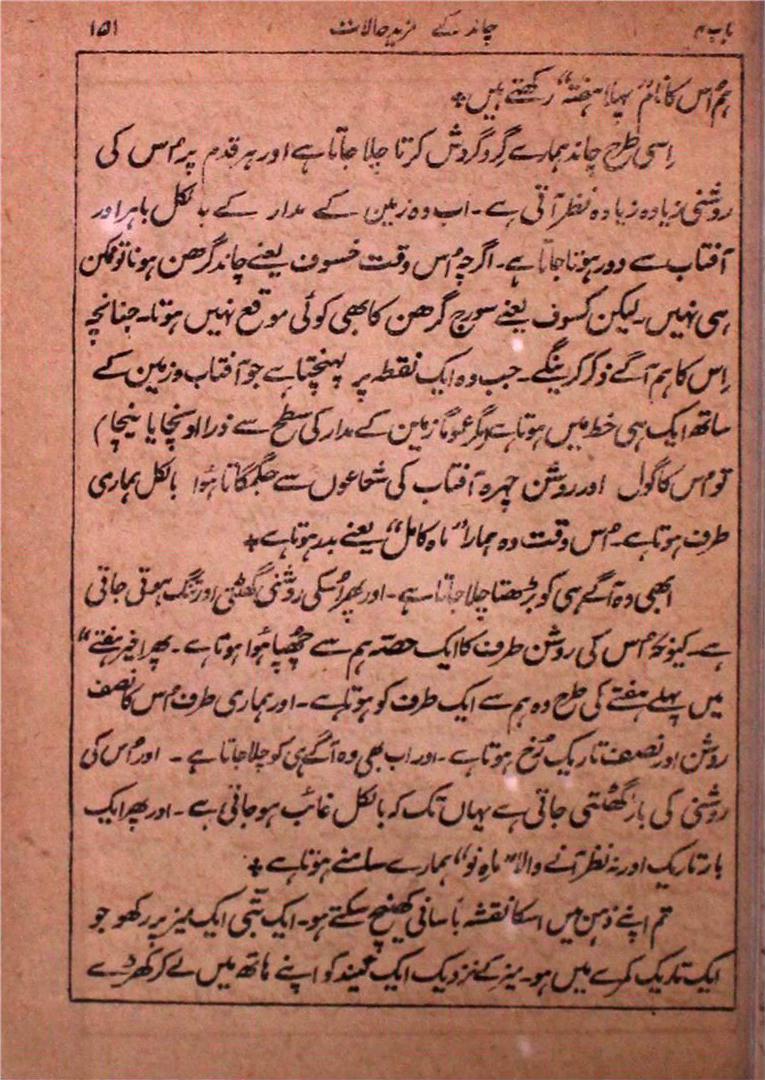 باب ۴ چاند کے مزید حالات ۱۵۱
ہم اُس کا نام ”پہلا ہفتہ“ رکھتے ہیں٭
اِسی طرح چاند ہمارے گرد گردش کرتا چلا جاتا ہے اور ہر قدم پر اُس کی
روشنی زیادہ زیادہ نظر آتی ہے۔ اب وہ زمین کے مدار کے بالکل باہر اور
آفتاب سے دور ہوتا جاتا ہے۔ اگرچہ اُس وقت خسوف یعنے چاند گرھن ہونا تو ممکن
ہی نہیں۔ لیکن کسوف یعنے سورج گرھن کا بھی کوئی موقع نہیں ہوتا۔ چنانچہ
اِس کا ہم آگے ذکر کرینگے۔ جب وہ ایک نقطہ پر پہنچتا ہے جو آفتاب و زمین کے
ساتھ ایک ہی خط میں ہوتا ہے مگر عموماً زمین کے مدار کی سطح سے ذرا اونچا یا نیچا
تو اُس کا گول اور روشن چہرہ آفتاب کی شعاعوں سے جگمگاتا ہُوا بالکل ہماری
طرف ہوتا ہے۔ اُس وقت وہ ہمارا ”ماہ کامل“ یعنے بدر ہوتا ہے٭
ابھی وہ آگے ہی کو بڑھتا چلا جاتا ہے۔ اور پھر اُسکی روشنی گھٹتی اور تنگ ہوتی جاتی
ہے۔ کیونکہ اُس کی روشن طرف کا ایک حصہ ہم سے چُھپا ہُوا ہوتا ہے۔ پھر اخیر ہفتے“
میں پہلے ہفتے کی طرح وہ ہم سے ایک طرف کو ہوتا ہے۔ اور ہماری طرف اُس کا نصف
روشن اور نصف تاریک رُخ ہوتا ہے۔ اور اب بھی وہ آگے ہی کو چلا جاتا ہے۔ اور اُس کی
روشنی کی باڑ گھٹتی جاتی ہے یہاں تک کہ بالکل غائب ہو جاتی ہے۔ اور پھر ایک
بار تاریک اور نہ نظر آنے والا ”ماہِ نو“ ہمارے سامنے ہوتا ہے٭
تم اپنے ذہن میں اسکا نقشہ بآسانی کھینچ سکتے ہو۔ ایک بتّی ایک میز پر رکھو جو
ایک تاریک کمرے میں ہو۔ میز کے نزدیک ایک گیند کو اپنے ہاتھ میں لے کر کھڑے